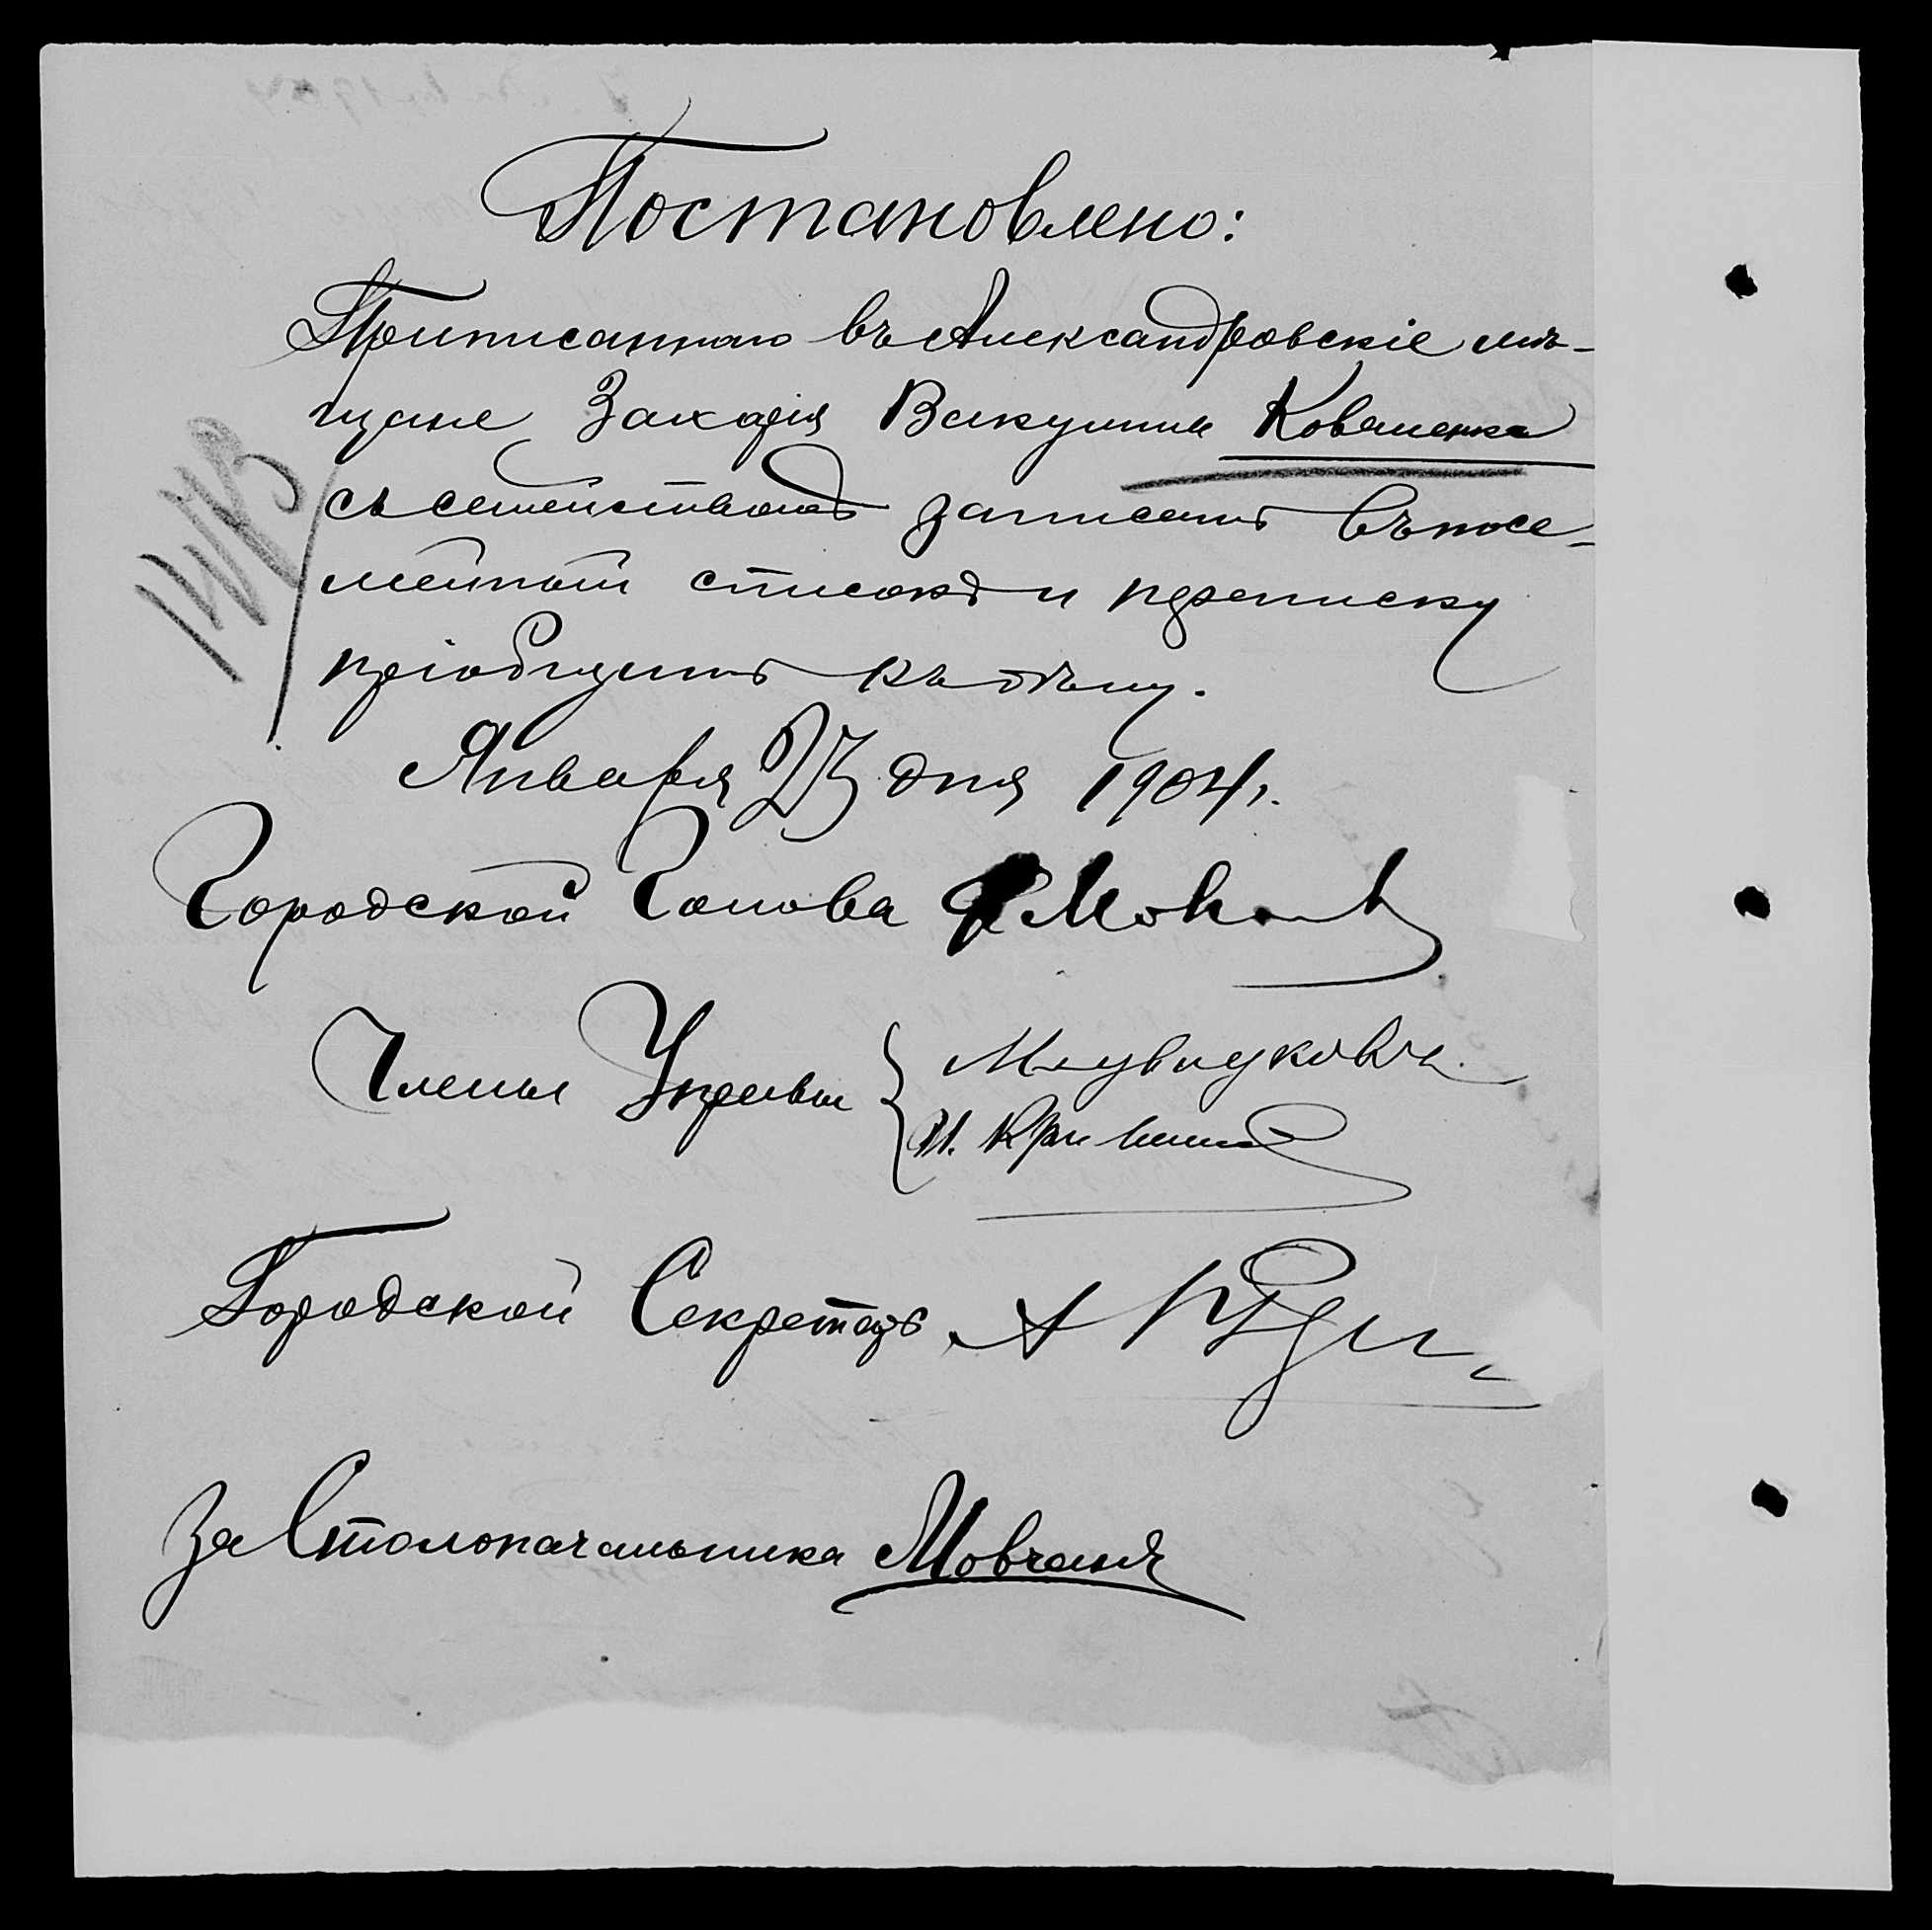 Постановлено:
Приписаннаго въ Александровскіе мѣ-
щане Захарія Вакулина Коваленка
съ семействомъ записать въ посе-
мейный списокъ и переписку
пріобщить къ дѣлу.
Января 23 дня 1904 г.
Городской Голова
Члены Управы
И.
Городской Секретарь А
За Столоначальника Мовчанъ